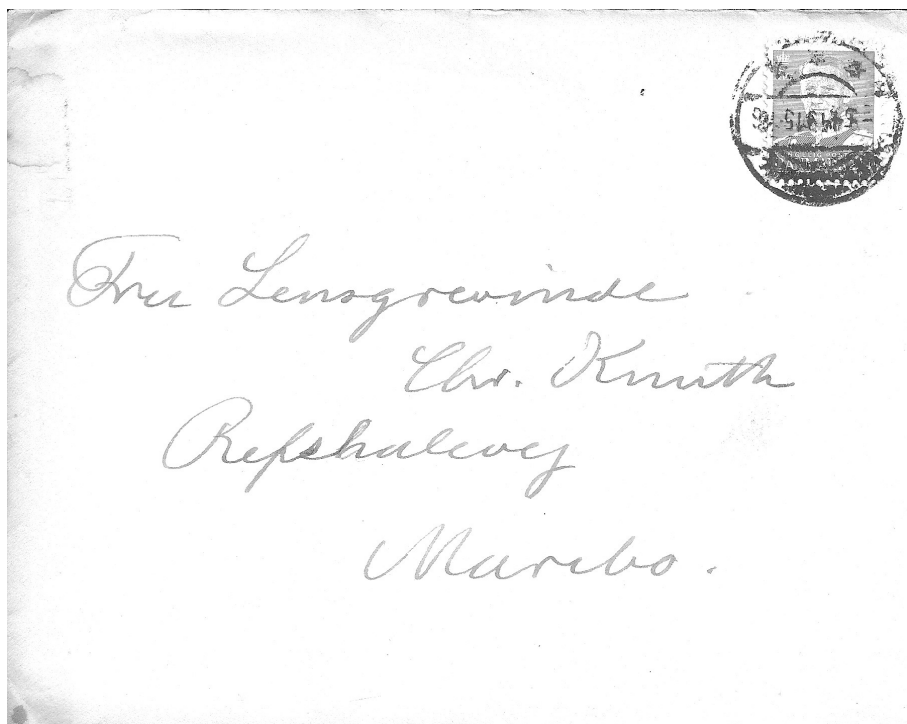 Fru Lensgrevinde
Chr. Knuth
Refshalevej
Maribo.